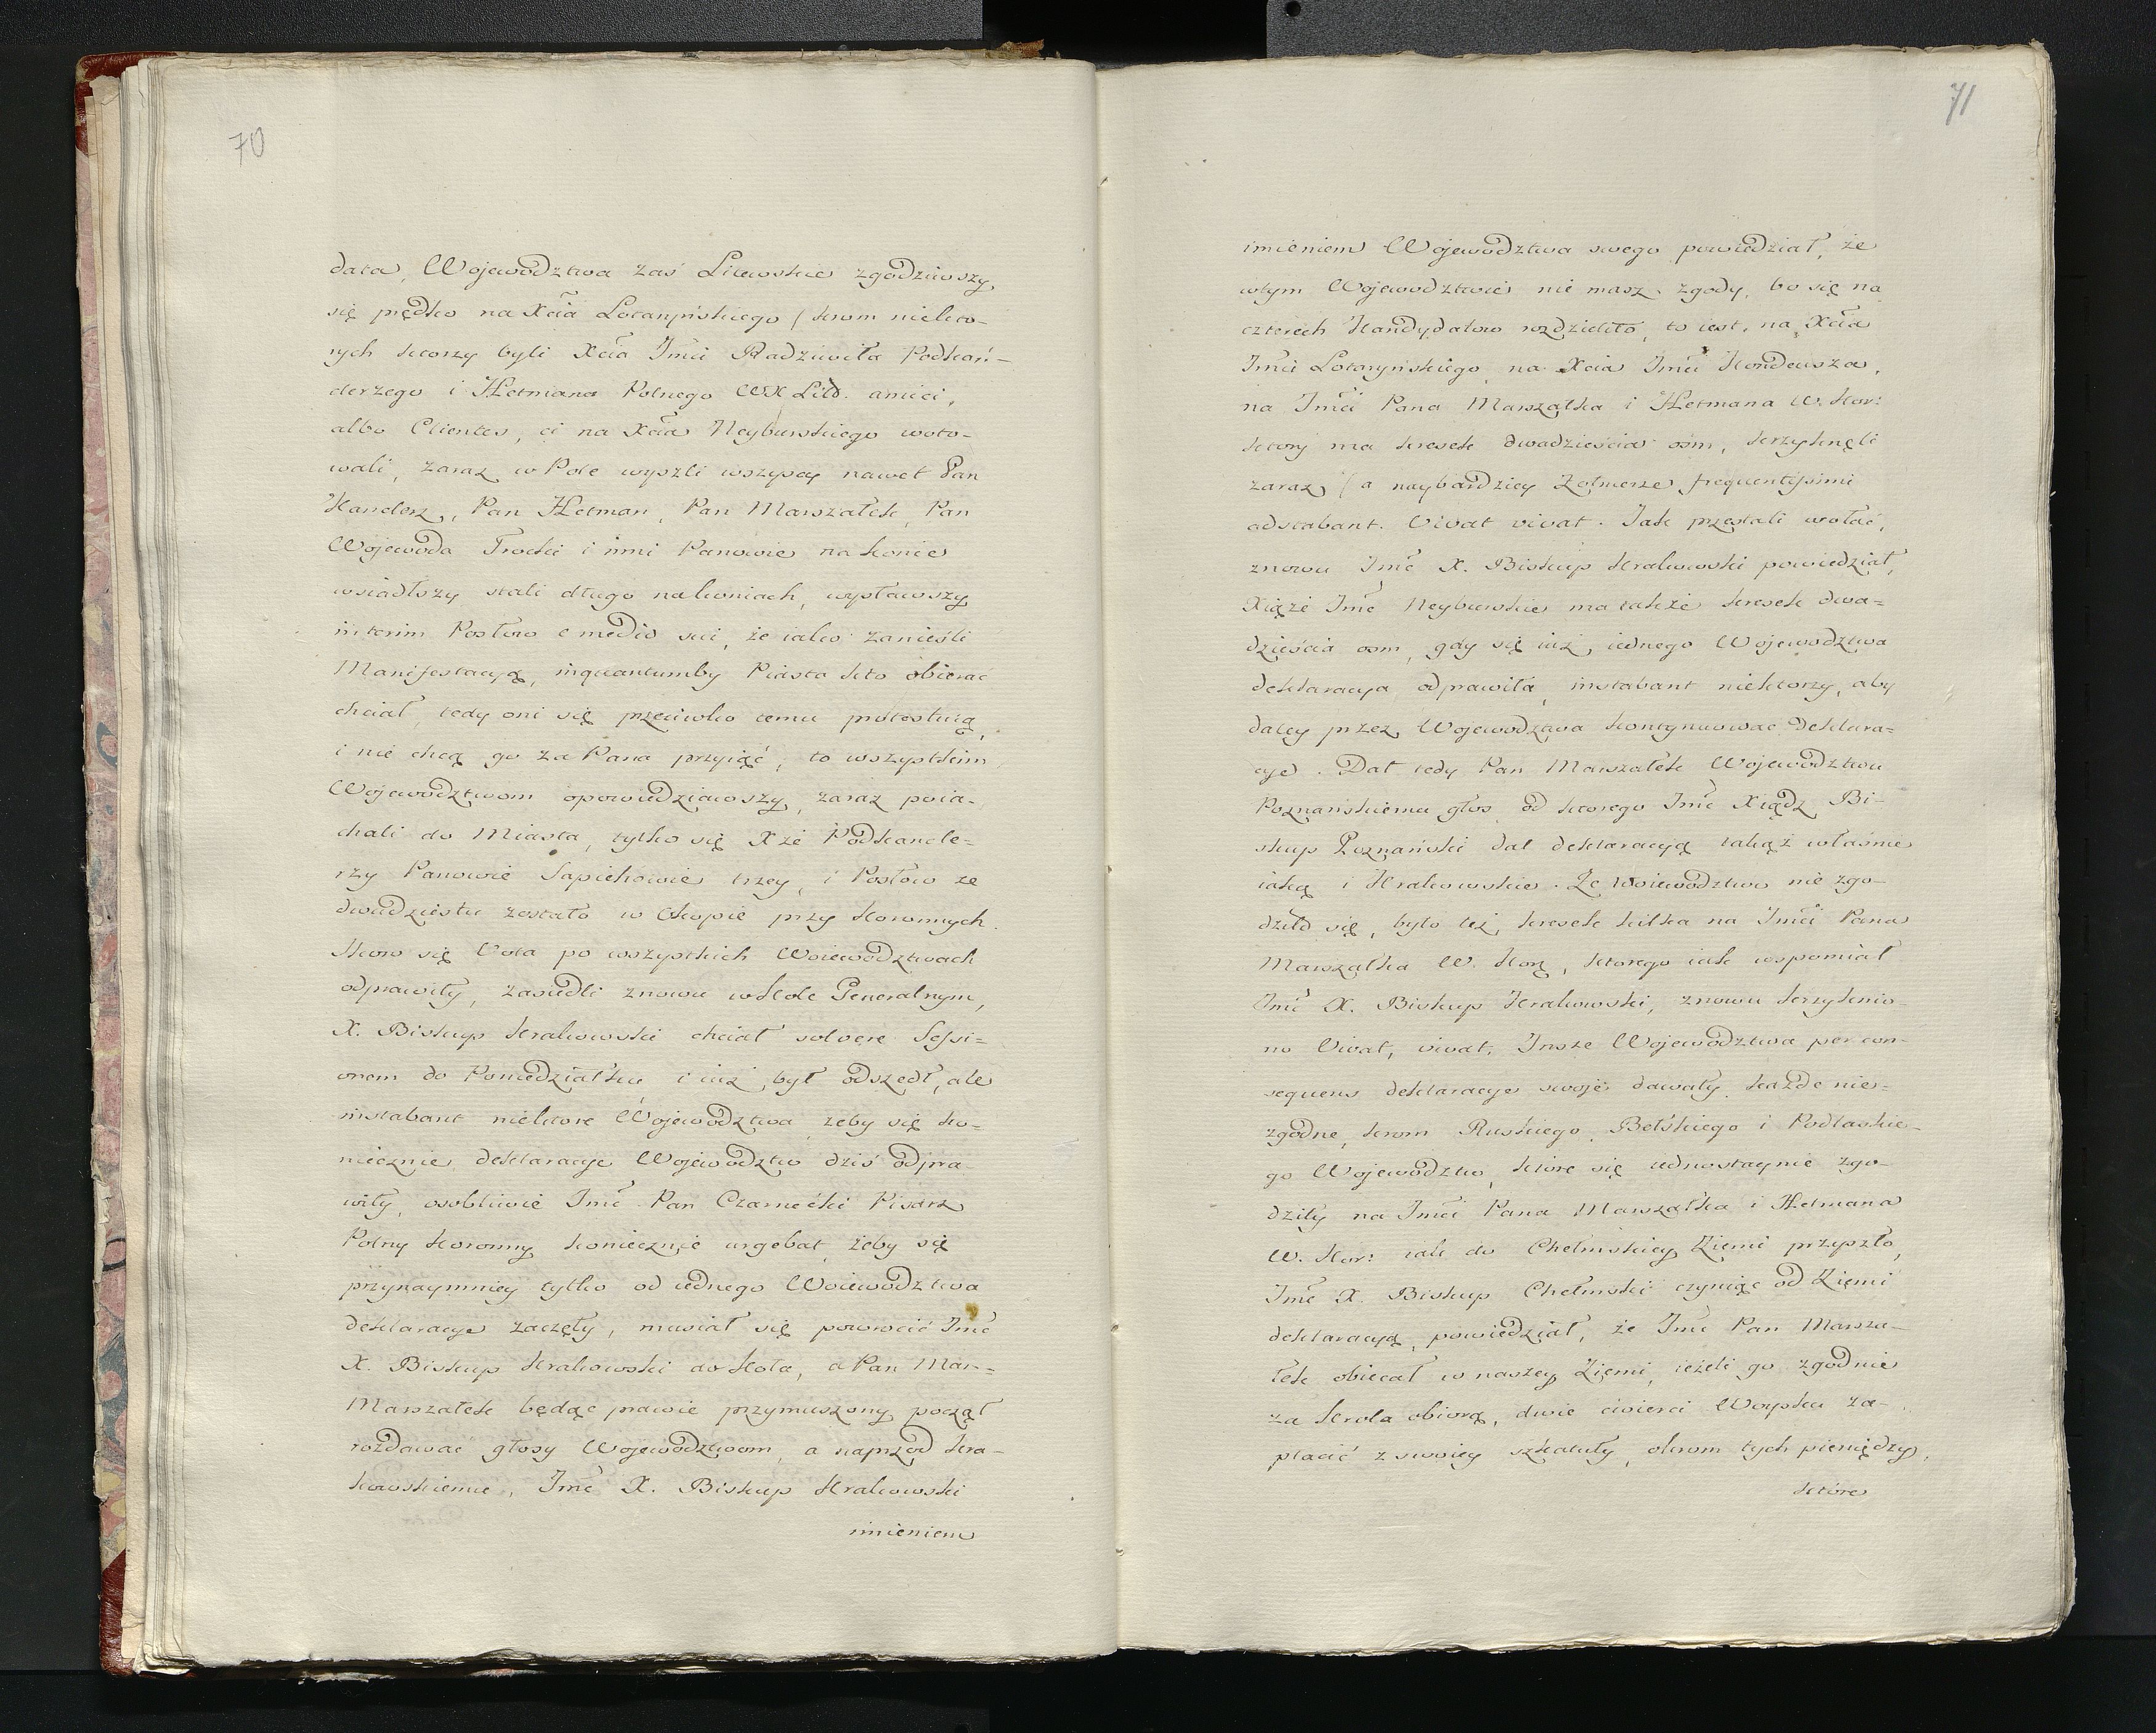 70
data, Wojewodztwa zaś Litewskie zgodziwszy
się prędko na Xcia Lotaryńskiego (krom niekto-
rych ktorzy byli Xcia Jmci Radziwiła Podkań-
clerzego i Hetmana Polnego WX Litt. amici,
albo Clientes, ci na Xcia Neyburskiego woto-
wali, zaraz w Pole wyszli wszyscy nawet Pan
Kanclerz, Pan Hetman, Pan Marszałek, Pan
Wojewoda Trocki i inni Panowie na konie
wsiadłszy stali długo na koniach, wysławszy
interim Posłow e medio sui, że iako zanieśli
Manifestacyą, inquantumby Piasta kto obierac
chciał, tedy oni się przeciwko temu protestuią,
i nie chcą go za Pana przyiąć, to wszystkim
Wojewodztwom opowiedziawszy, zaraz poia-
chali do Miasta, tylko się Xże Podkancle-
rzy Panowie Sapiehowie trzey, i Posłow ze
dwudziestu zostało w Okopie przy Koronnych.
Skoro się Vota po wszystkich Woiewodztwach
odprawiły, zasiedli znowu w Kole Generalnym,
X. Biskup Krakowski chciał solvere Sessi-
onem do Poniedziałku i iuż był odszedł, ale
instabant niektore Wojewodztwa żeby się ko-
niecznie deklaracye Wojewodztw dziś odpra-
wiły, osobliwie Jmć Pan Czarnećki Pisarz
Polny Koronny koniecznie urgebat, żeby się
przynaymniey tylko od iednego Woiewodztwa
deklaracye zaczęły, musiał się powrocić Jmć
X. Biskup Krakowski do Koła, a Pan Mar-
Marszałek będąc prawie przymuszony począł
rozdawać głosy Wojewodztwom, a naprzod Kra-
kowskiemu, Jmć X. Biskup Krakowski
imieniem
71
imieniem Wojewodztwa swego powiedział, że
w tym Wojewodztwie nie masz zgody, bo się na
czterech Kandydatow rozdzieliło, to iest, na Xcia
Jmci Lotaryńskiego, na Xcia Jmci Kondeusza,
na Jmci Pana Marszałka i Hetmana W. Kor:
ktory ma kresek dwadzieścia osm, krzyknęli
zaraz (a naybardziey Zołnierze frequentissimi
adstabant. Vivat vivat. Jak przestali wołać,
znowu Jmć X. Biskup Krakowski powiedział,
Xiąże Jmć Neyburskie ma także kresek dwa-
dzieścia osm, gdy się iuż iednego Wojewodztwa
deklaracya odprawiła, instabant niektorzy, aby
daley przez Wojewodztwa kontynuować deklara-
cye. Dał tedy Pan Marszałek Wojewodztwu
Poznańskiemu głos, od ktorego Jmć Xiądz Bi-
skup Poznański dał deklaracyą takąż właśnie
iaką i Krakowskie. Że Woiewodztwo nie zgo-
dziło się, było też kresek kilka na Jmci Pana
Marszałka W. Kor, ktorego iak wspomiał
Jmć X. Biskup Krakowski, znowu krzyknio-
no Vivat, vivat, Insze Wojewodztwa per con-
sequens deklaracye swoje dawały, każde nie-
zgodne, krom Ruskiego, Bełskiego i Podlaskie-
go Wojewodztw, ktore się iednostaynie zgo-
dziły na Jmci Pana Marszałka i Hetmana
W. Kor: iak do Chełmskiey Ziemi przyszło,
Jmć X. Biskup Chełmski czyniąc od Ziemi
deklaracyą, powiedział, że Jmć Pan Marsza-
łek obiecał w naszey Ziemi, ieżeli go zgodnie
za Krola obiorą, dwie ćwierci Woysku za-
płacić z swoiey szkatuły, okrom tych pieniędzy,
ktore